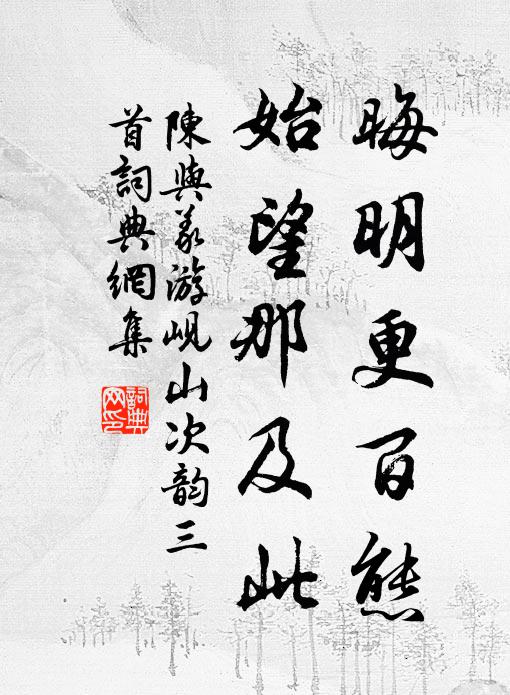 晦明更百態
始望那及此
陳與義游峴山次韵三
首詞典網集
詞典
网印